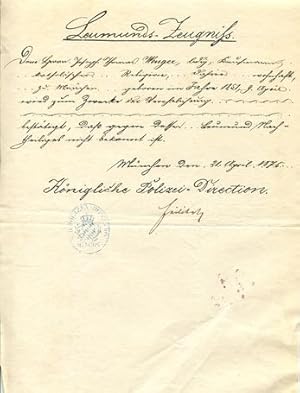 Leumunds-Zeugniß.
Dem Herrn Joseph Thomas ledig, Kaufmann,
katholischer Religion,
zu München geboren im Jahre 1851, 9. April
wird zum Zwecke der Verehelichung
bestätigt, daß gegen dessen Leumund Nach-
theiliges nicht bekannt ist.
München den 21. April 1875.
Königliche Polizei-Direction.